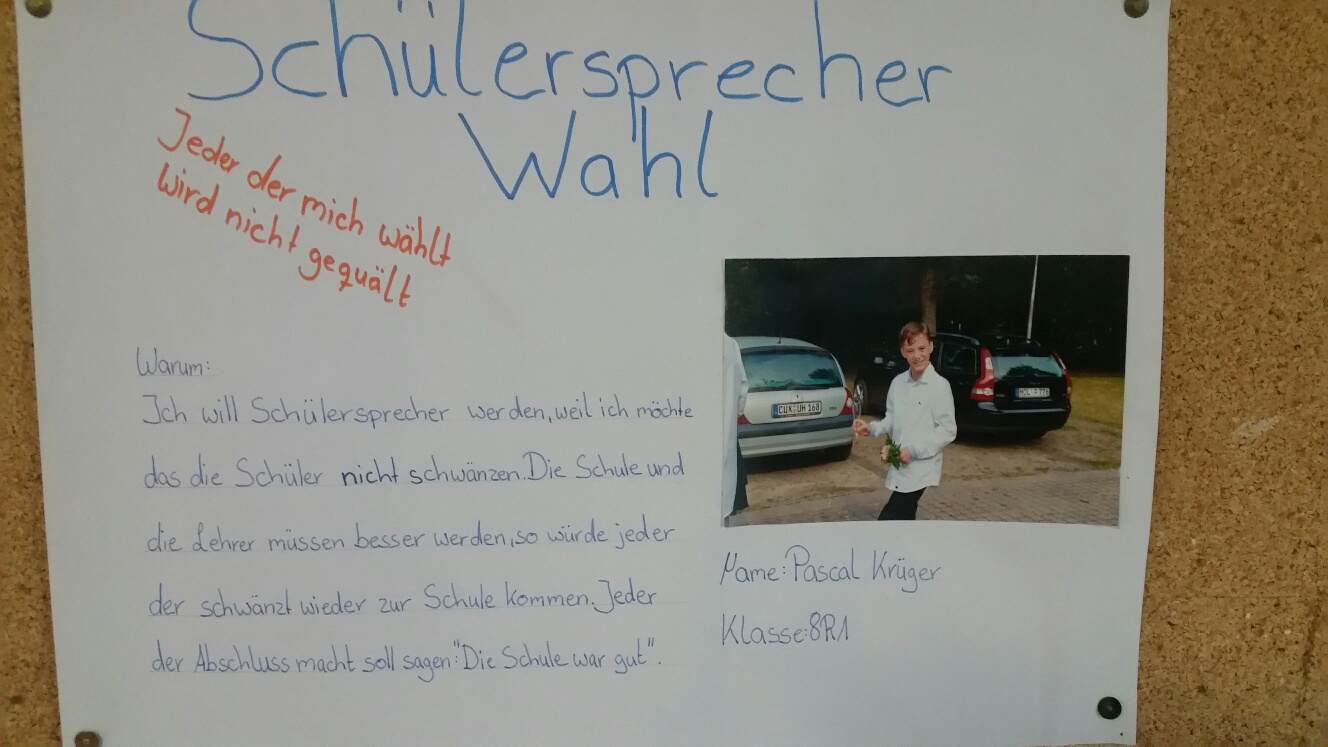 Schülersprecher
Wahl
Jeder der mich wählt
wird nicht gequält
Warum:
Ich will Schülersprecher werden, weil ich möchte
das die Schüler nicht schwänzen. Die Schule und
die Lehrer müssen besser werden, so würde jeder
der schwänzt wieder zur Schule kommen. Jeder
der Abschluss macht soll sagen: "Die Schule war gut".
CUX UH 168
Name: Pascal Krüger
Klasse: 8R1